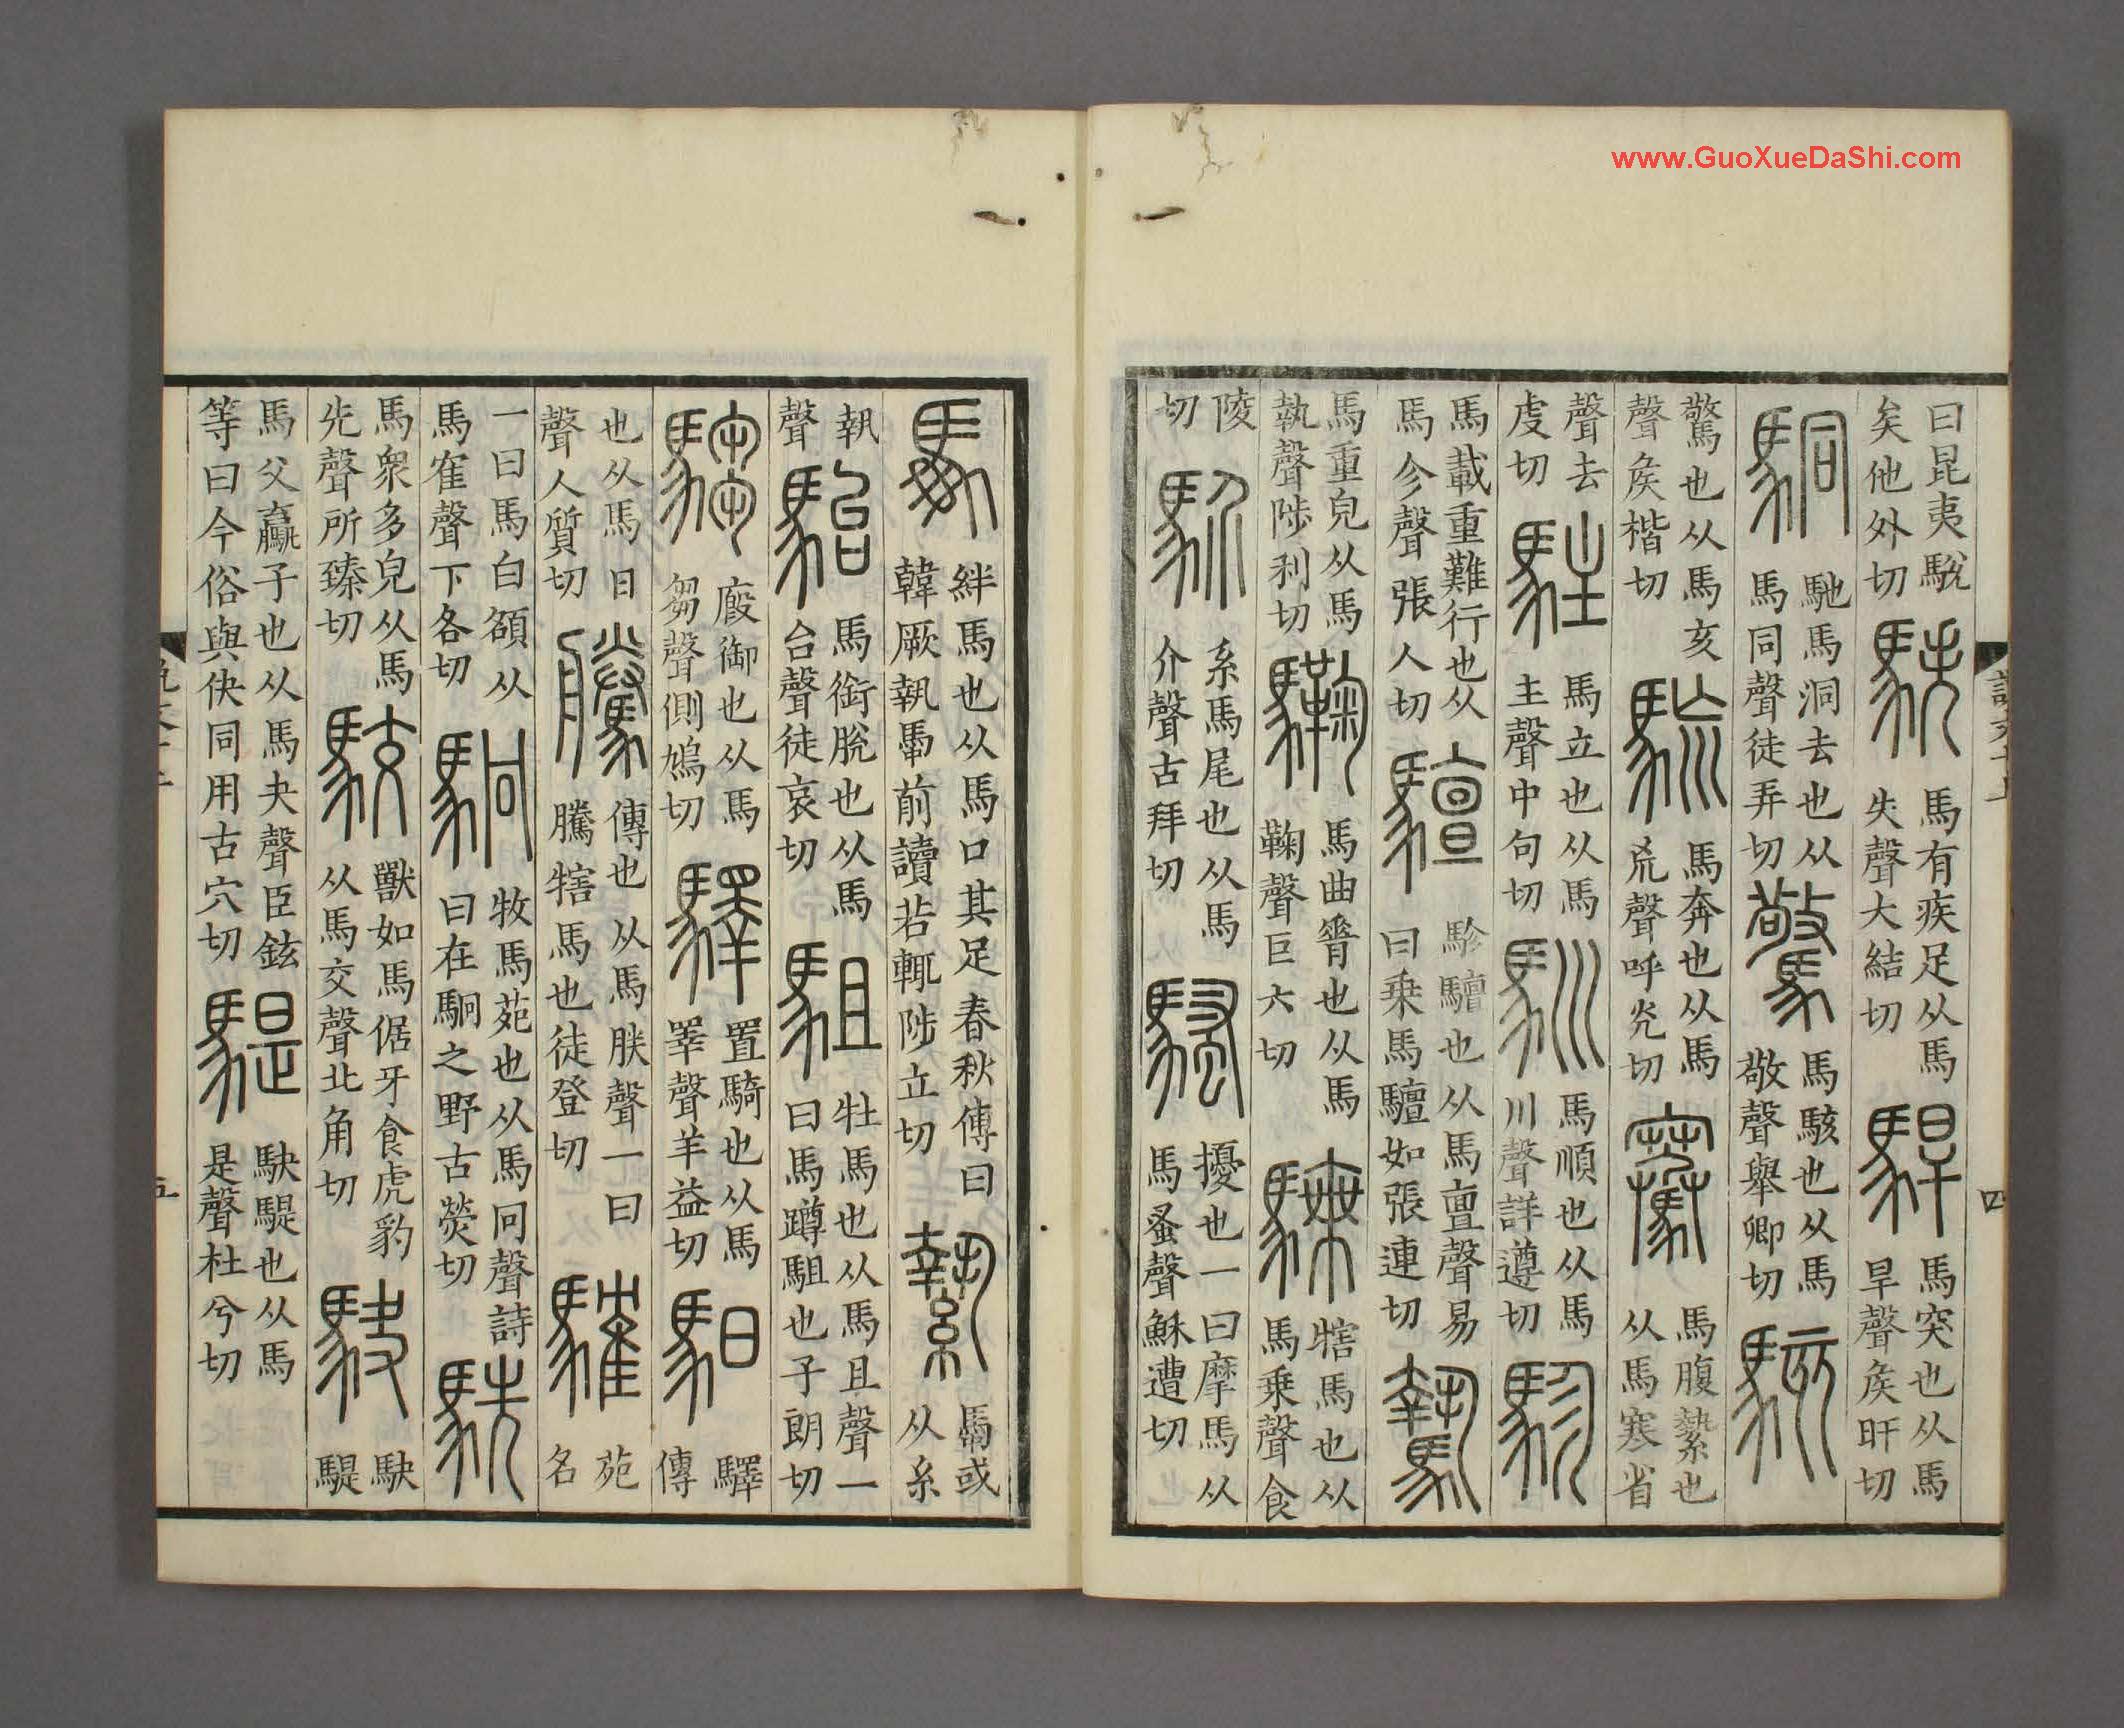 曰昆夷駾矣他外切䭿馬有疾足从馬失聲大結切駻馬突也从馬旱聲矦旰切
駧馳馬洞去也从馬同聲徒弄切驚馬駭也从馬敬聲舉卿切駭
驚也从馬亥聲矦楷切䮲馬奔也从馬㠩聲呼光切騫馬腹縶也从馬寒省
聲去虔切駐馬立也从馬主聲中句切馴馬順也从馬川聲詳遵切駗
馬載重難行也从馬㐱聲張人切驙駗驙也从馬亶聲易曰乗馬驙如張連切驇
馬重皃从馬執聲陟利切驧馬曲脊也从馬鞠聲巨六切騬犗馬也从馬乗聲食
陵切䭸系馬尾也从馬介聲古拜切騷擾也一曰摩馬从馬蚤聲穌遭切
說文十上
四
馽絆馬也从馬口其足春秋傳曰韓厥執馽前讀若輒陟立切縶馽或从糸
執聲駘馬銜脫也从馬台聲徒哀切駔牡馬也从馬且聲一曰馬蹲駔也子朗切
騶廄御也从馬芻聲側鳩切驛置騎也从馬睪聲羊益切馹驛傳
也从馬日聲人質切騰傳也从馬朕聲一曰騰犗馬也徒登切䮤苑名
一曰馬白頟从馬隺聲下各切駉牧馬苑也从馬冋聲詩曰在駉之野古熒切駪
馬衆多皃从馬先聲所臻切駮獸如馬倨牙食虎豹从馬交聲北角切駃駃騠
馬父驘子也从馬夬聲臣鉉等曰今俗與快同用古穴切騠駃騠也从馬是聲杜兮切
五
www.GuoXueDaShi.com